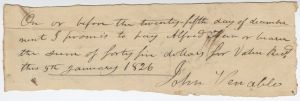 On or before the twenty fifth day of decem
next I promis to pay Alfred or bearer
the sum of forty five dollars for Value Recd
this 5th January 1826
John Venable